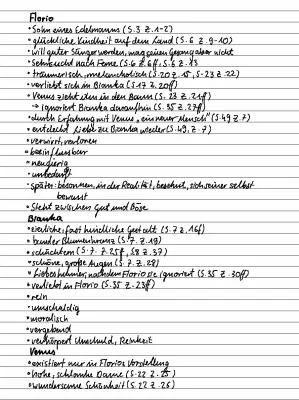 Florio
• Sohn eines Edelmanns (S.3 Z.1-2)
• glückliche Kindheit auf dem Land (S.6 Z.9-10)
• will guter Sänger werden, mag seinen Gesang aber nicht
• Sehnsucht nach Ferne (S.6 Z.6ff, S.6 Z.13
• träumerisch, melancholisch (S.20 Z.15, S.23 Z.22)
• verliebt sich in Bianka (S.17 Z.20ff)
• Venus zieht ihn in den Bann (S.23 Z.21f)
→ ignoriert Bianka daraufhin (S.35 Z.27f)
• durch Erfahrung mit Venus "ein neuer Mensch" (S.49 Z.7)
• entdeckt Liebe zu Bianka wieder (S.49, Z.7)
• verwirrt, verloren
• beeinflussbar
• neugierig
• unbedarft
• später: besonnen, in der Realität, bekehrt, sich seiner selbst
bewusst
• Steht zwischen Gut und Böse
Bianka
• zierliche, fast kindliche Gestalt (S.7 Z.16f)
• bunter Blumenkranz (S.7 Z.19)
• schüchtern (S.7 Z.25f, S.8 Z.37)
• schöne, große Augen (S.7 Z.28)
• Liebeskummer, nachdem Florio sie ignoriert (S.35 Z.30ff)
• verliebt in Florio (S.35 Z.23ff)
• rein
• unschuldig
• moralisch
• vergebend
• verkörpert Unschuld, Reinheit
Venus
• existiert nur in Florios Vorstellung
• hohe, schlanke Dame (S.22 Z.25)
• wundersame Schönheit (S.22 Z.26)